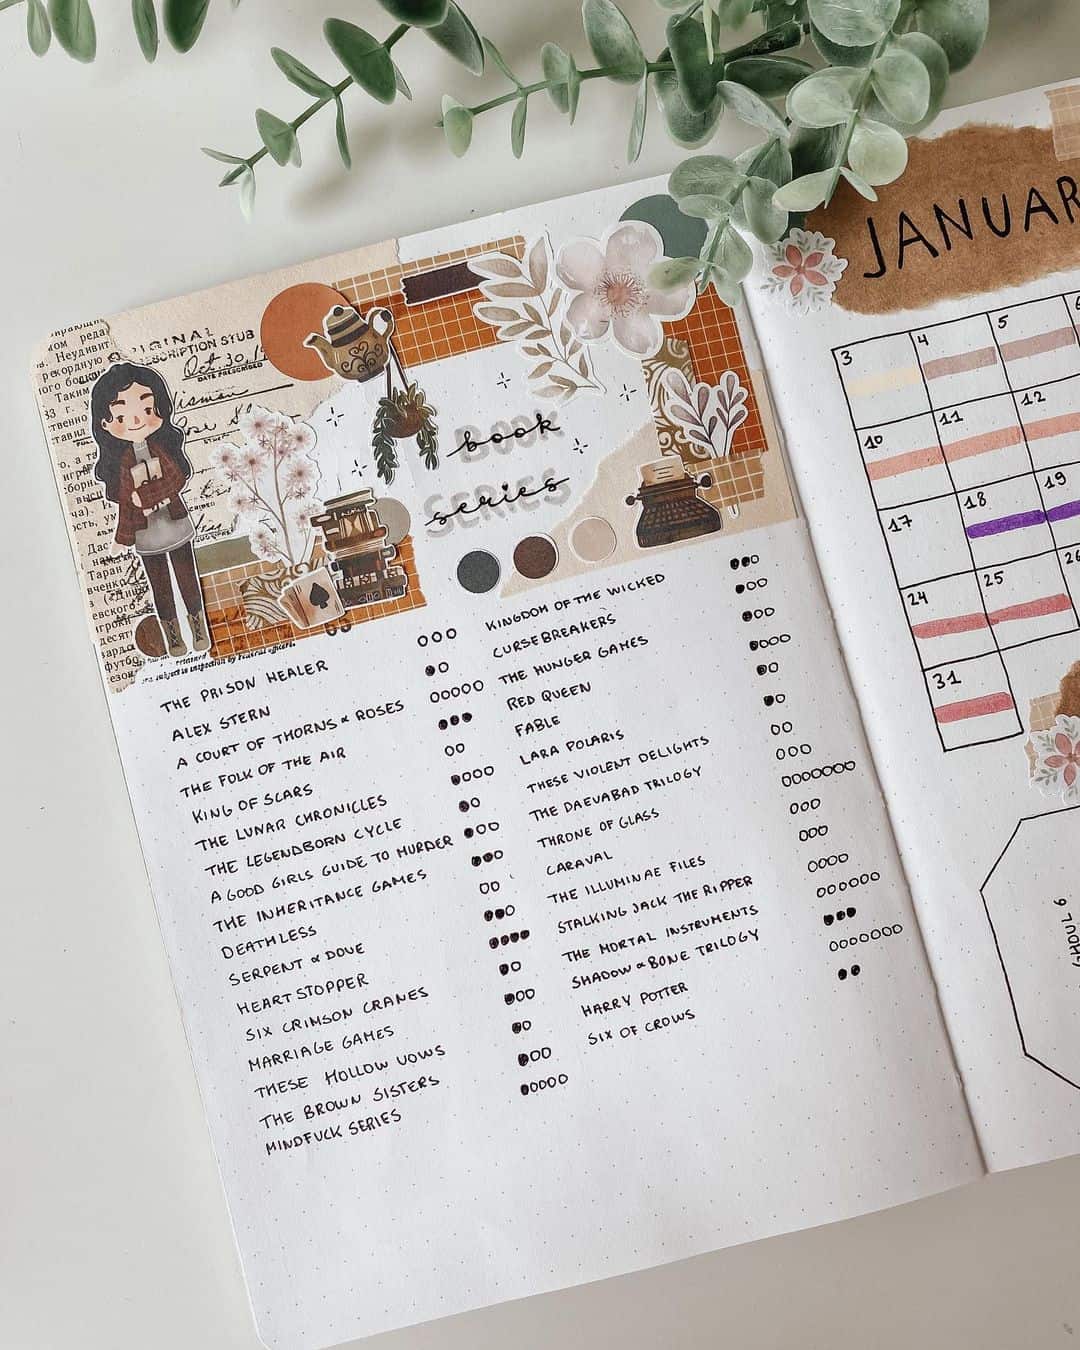 ORIGINAL
DESCRIPTION STUB
Oct. 30,
DATE PRESCRIBED
book
BOOK
series
SERIES
subject to inspection by Federal officers.
THE PRISON HEALER
ALEX STERN
A COURT OF THORNS & ROSES
THE FOLK OF THE AIR
KING OF SCARS
THE LUNAR CHRONICLES
THE LEGENDBORN CYCLE
A GOOD GIRLS GUIDE TO MURDER
THE INHERITANCE GAMES
DEATHLESS
SERPENT & DOVE
HEARTSTOPPER
SIX CRIMSON CRANES
MARRIAGE GAMES
THESE HOLLOW VOWS
THE BROWN SISTERS
MINDFUCK SERIES
KINGDOM OF THE WICKED
CURSEBREAKERS
THE HUNGER GAMES
RED QUEEN
FABLE
LARA POLARIS
THESE VIOLENT DELIGHTS
THE DAEVABAD TRILOGY
THRONE OF GLASS
CARAVAL
THE ILLUMINAE FILES
STALKING JACK THE RIPPER
THE MORTAL INSTRUMENTS
SHADOW & BONE TRILOGY
HARRY POTTER
SIX OF CROWS
JANUAR
3 4 5
10 11 12
17 18 19
24 25 26
31
GHOUL 6